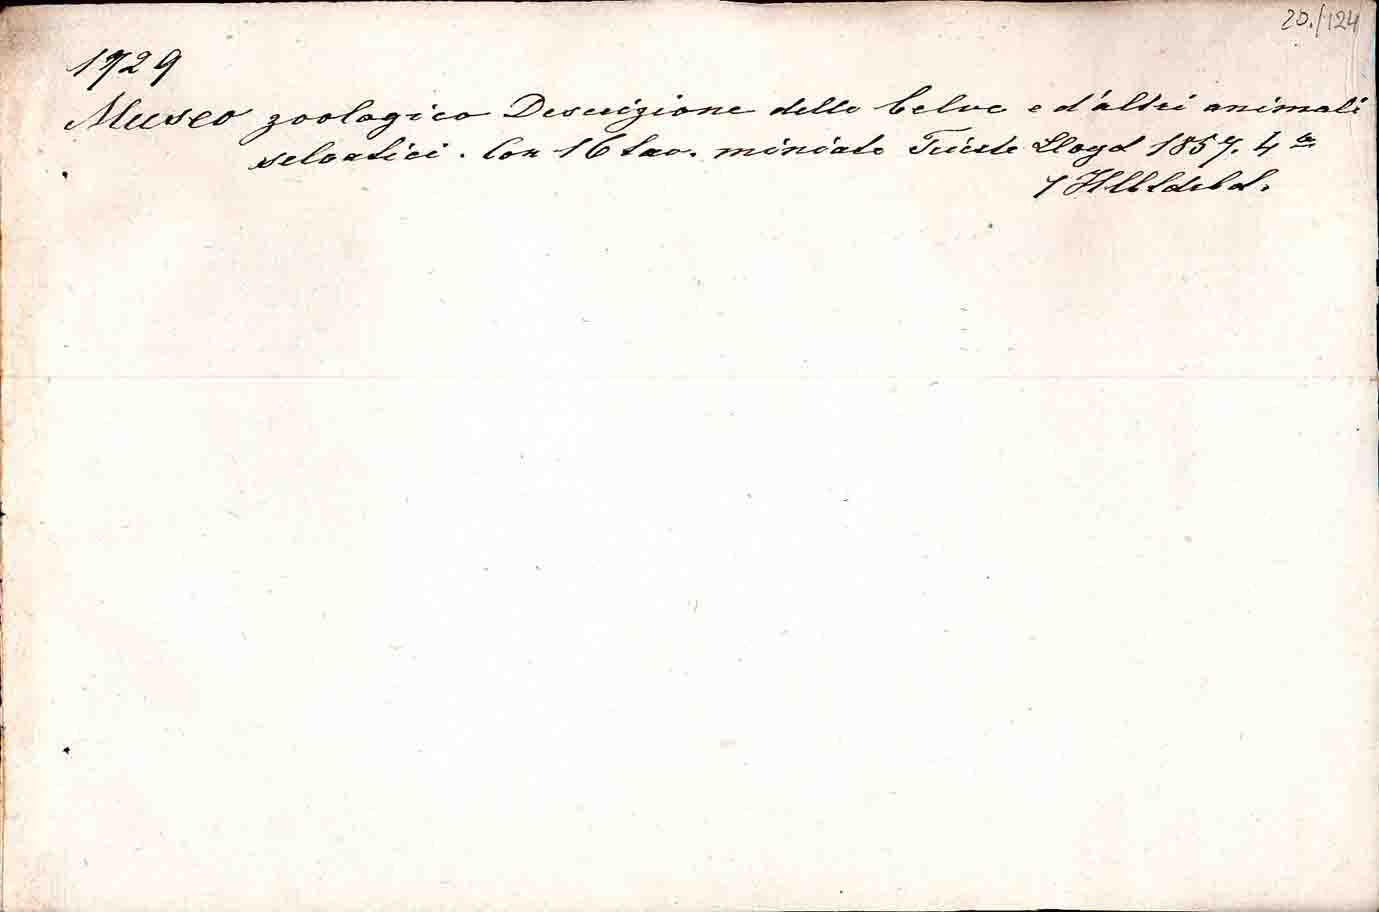 20./124
1729
Museo zoologico Descrizione delle belve e d'altri animali
selvatici. Con 16 tav. miniate Trieste Lloyd 1857. 4to
1 Hlbldrbd.